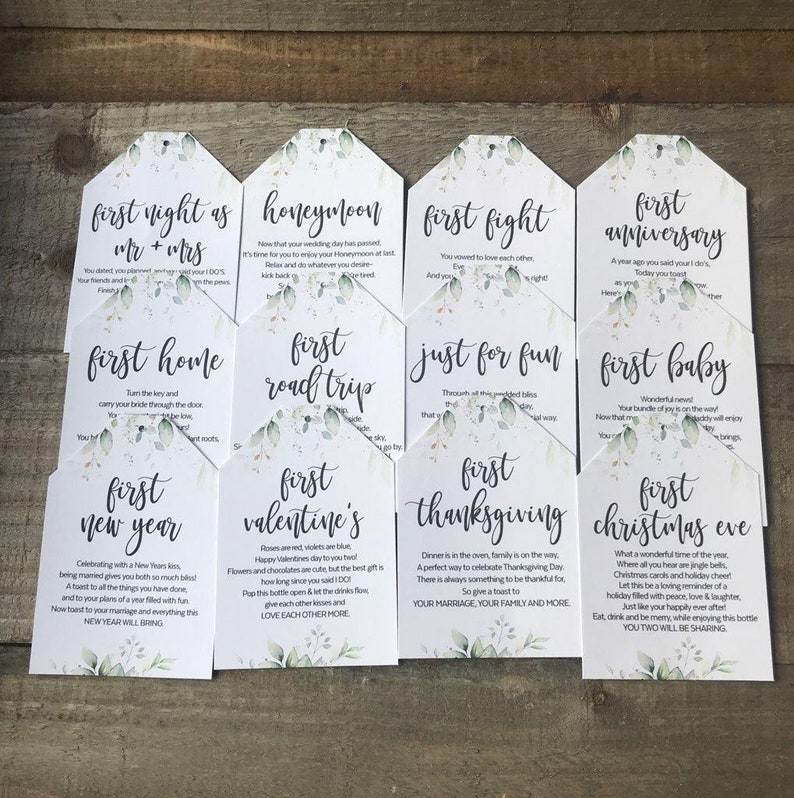 first night as
mr + mrs
You dated, you planned, and you said your I DO'S.
Your friends and
the pews.
Finish
honeymoon
Now that your wedding day has passed,
It's time for you to enjoy your Honeymoon at last.
Relax and do whatever you desire-
kick back
tired.
first fight
You vowed to love each other,
And you
right!
first
anniversary
A year ago you said your I do's,
Today you toast
as
Here's
first home
Turn the key and
carry your bride through the door.
be low,
roots,
first
road trip
sky,
go by.
just for fun
Through all this wedded bliss
day,
that
way.
first baby
Wonderful news!
Your bundle of joy is on the way!
Now that
daddy will enjoy
brings,
first
new year
Celebrating with a New Years kiss,
being married gives you both so much bliss!
A toast to all the things you have done,
and to your plans of a year filled with fun.
Now toast to your marriage and everything this
NEW YEAR WILL BRING.
first
valentine's
Roses are red, violets are blue,
Happy Valentines day to you two!
Flowers and chocolates are cute, but the best gift is
how long since you said I DO!
Pop this bottle open & let the drinks flow,
give each other kisses and
LOVE EACH OTHER MORE.
first
thanksgiving
Dinner is in the oven, family is on the way,
A perfect way to celebrate Thanksgiving Day.
There is always something to be thankful for,
So give a toast to
YOUR MARRIAGE, YOUR FAMILY AND MORE.
first
christmas eve
What a wonderful time of the year,
Where all you hear are jingle bells,
Christmas carols and holiday cheer!
Let this be a loving reminder of a
holiday filled with peace, love & laughter,
Just like your happily ever after!
Eat, drink and be merry, while enjoying this bottle
YOU TWO WILL BE SHARING.